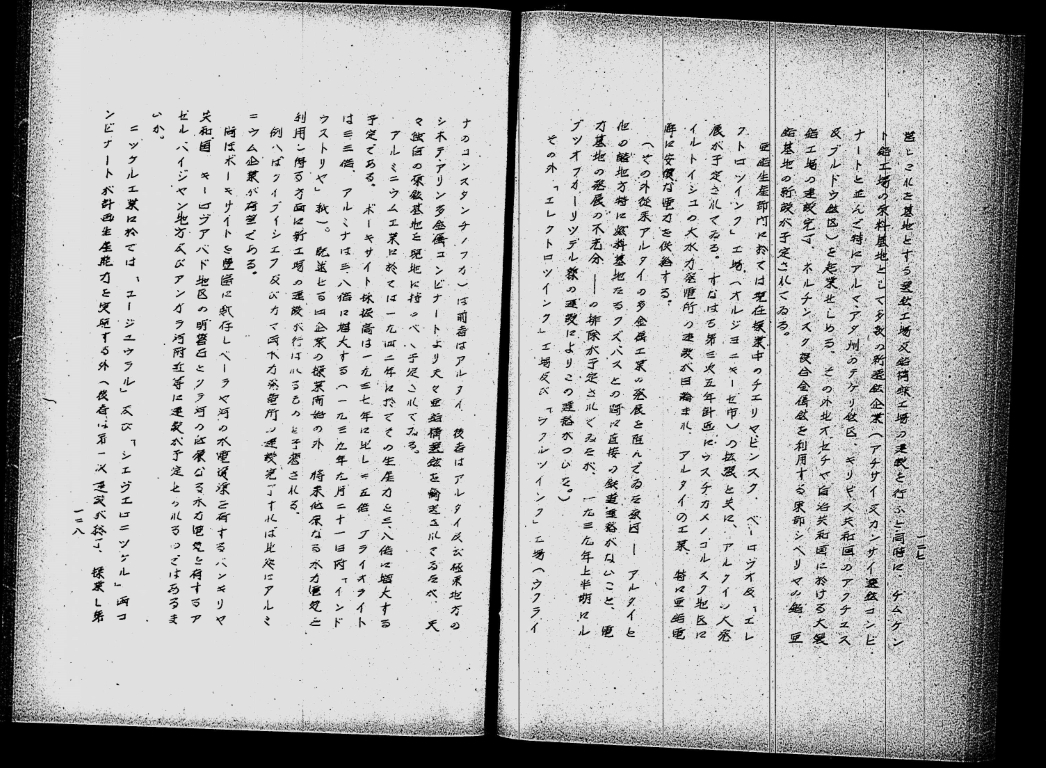 一二七
とこれを基地とする選鉱工場及鉛精錬工場の建設を行ふと同時に チムケン
ト鉛工場の原料基地として多数の新選鉱企業(アチサイ及カンサイ選鉱コンビ
ナートと並んで特にアルマ・アタ州のテケリ鉱区、キリギス共和国のアクチュス
及ブルドウ鉱区)を起業せしめる。その外北オセチヤ自治共和国に於ける大製
錬工場の建設完了、ネルチンスク複合金属鉱を利用する東部シベリヤの鉛、亜
鉛基地の新設が予定されてゐる。
亜鉛生産部門に於ては現在操業中のチエリヤビンスク、ベーロヴオ及「エレ
クトロツインク」工場(オルジヨニキーゼ市)の拡張と共に、アルタイの大発
展が予定されてゐる。すなはち第三次五年計画にウスチカメノゴルスク地区に
イルトイシユの大水力発電所の建設が目論まれ、アルタイの工業、特に亜鉛電
解に安価な電力を供給する。
(その外従来アルタイの多金属工業の発展を阻んでゐた原因— アルタイと
他の諸地方特に燃料基地たるクズバスとの間に直接の鉄道連絡がないこと、電
力基地の発展の不充分——の排除が予定されてゐるが、一九三九年上半期にル
ブツオフカ—リツデル線の建設によりこの連絡がついた。)
その外「エレクトロツインク」工場及び「ウクルツインク」工場(ウクライ
ナのコンスタンチノフカ)は前者はアルタイ、後者はアルタイ及び極東地方の
シホテ・アリン多金属コンビナートより夫々亜鉛精鉱を輸送されてゐるが、夫
々独自の原鉱基地を現地に持つべく予定されてゐる。
アルミニウム工業に於ては一九四二年に於てその生産力を三、八倍に増大する
予定である。ボーキサイト採掘高は一九三七年に比し二・五倍、クライオライト
は三・三倍、アルミナは三・八倍に増大する(一九三九年九月二十一日附「インド
ウストリヤ」紙)。既述とる四企業の操業開始の外、将来低廉なる水力電気を
利用し得る方面に新工場の建設が行はれるものと予想される。
例へばクイブイシエフ及びカマ両水力発電所の建設完了すれば此処にアルミ
ニウム企業が有望である。
尚ほボーキサイトを豊富に賦存しベーラヤ河の水電資源を有するバシキリヤ
共和国、キーロヴアバド地区の明礬石とクラ河の低廉なる水力電気を有するア
ゼルバイジヤン地方及びアンガラ河附近等に建設が予定とられるのではあるま
いか。
ニツケル工業に於ては、「ユージユウラル」及び「シエヴエロニツケル」両コ
ンビナートが計画生産能力を実現する外(後者は第一次建設が終了、操業し第
一二八